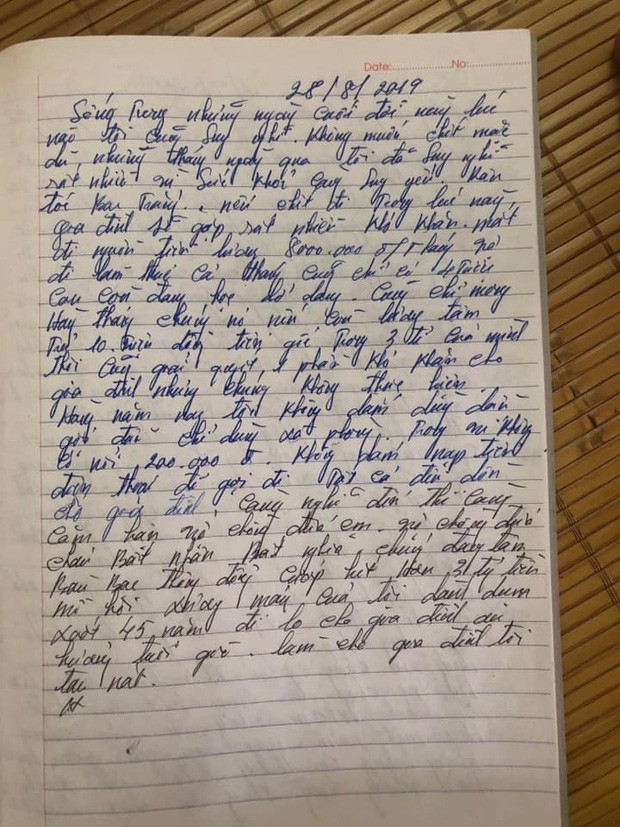 Date:..................No:............
28/8/2019
Sống Trong những ngày cuối đời này lúc
ngõ tôi cũng suy nghĩ. Không muốn chết mặc
dù, những tháng ngày qua tôi đã suy nghĩ
rất nhiều vì sức khỏe cũng suy yếu
tôi. nếu chết đi Trong lúc này
gia đình sẽ gặp rất nhiều khó khăn. mất
đi nguồn tiền lương 8000.000 đ/Tháng
đi làm thuê cả tháng cũng chỉ có 4 Triệu
con còn đang học dở dang. Cũng chỉ mong
Hàng tháng chúng nó lương tâm
Trả 10 triệu đồng tiền gốc Trong 3 tỉ của mình
thôi cũng giải quyết 1 phần khó khăn cho
gia đình nhưng chúng không thực hiện.
Hàng năm nay tôi không dám dùng dầu
gội đầu chỉ dùng xà phòng. Trong ví không
có nổi 200.000 đ không dám nạp tiền
điện thoại để gọi đi Tất cả để dồn
cho gia đình. Càng nghĩ đến thì càng
căm hận vợ chồng đứa em. vợ chồng đứa
cháu Bất nhân Bất nghĩa, chúng đang tâm
Bàn Bạc thông đồng cướp hết Hơn 3 tỷ tiền
mồ hôi xương máu của tôi dành dụm
suốt 45 năm để lo cho gia đình
hưởng tuổi già. làm cho gia đình tôi
tan nát.